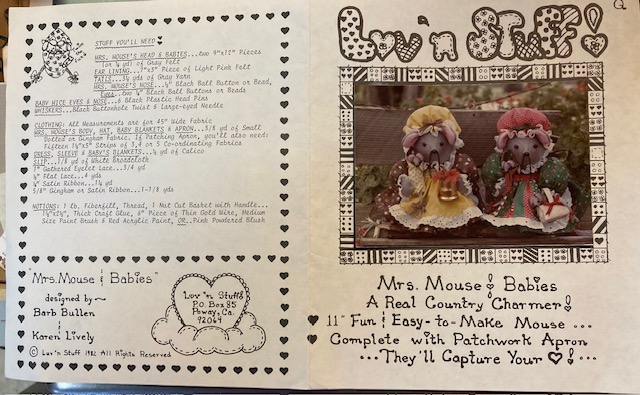 STUFF YOU'LL NEED
MRS. MOUSE'S HEAD & BABIES...two 9"x12" Pieces
(or ¼ yd) of Gray Felt
EAR LINING...9"x3" Piece of Light Pink Felt
of Gray Yarn
MRS. MOUSE'S NOSE...½" Black Ball Button or Bead,
EYES...two Black Ball Buttons or Beads
BABY MICE EYES & NOSE...6 Black Plastic Head Pins
WHISKERS...Black Buttonhole Twist & Large-eyed Needle
CLOTHING: All Measurements are for 45" Wide Fabric
MRS. MOUSE'S BODY, HAT, BABY BLANKETS & APRON...5/8 yd of Small
Dotted or Gingham Fabric. If Patching Apron, you'll also need:
Fifteen Strips of 3,4 or 5 Co-ordinating Fabrics
DRESS, SLEEVE & BABY'S BLANKETS...¼ yd of Calico
SLIP...1/8 yd of White Broadcloth
Gathered Eyelet Lace...3/4 yd
Flat Lace...4 yds
¼" Satin Ribbon...1¼ yds
5/8" Gingham or Satin Ribbon...1-1/8 yds
NOTIONS: 1 lb. Fiberfill, Thread, 1 Nut Cut Basket with Handle...
Thick Craft Glue, 6" Piece of Thin Gold Wire, Medium
Size Paint Brush & Red Acrylic Paint, OR..Pink Powdered Blush
"Mrs. Mouse & Babies"
designed by ~
Barb Bullen
&
Karen Lively
© Luv 'n Stuff 1982 All Rights Reserved
Luv 'n Stuff
P.O. Box 85
Poway, Ca.
92064
Q
Luv 'n Stuff!
Mrs. Mouse & Babies
A Real Country Charmer!
11" Fun & Easy-to-Make Mouse ...
Complete with Patchwork Apron
...They'll Capture Your ♥!...